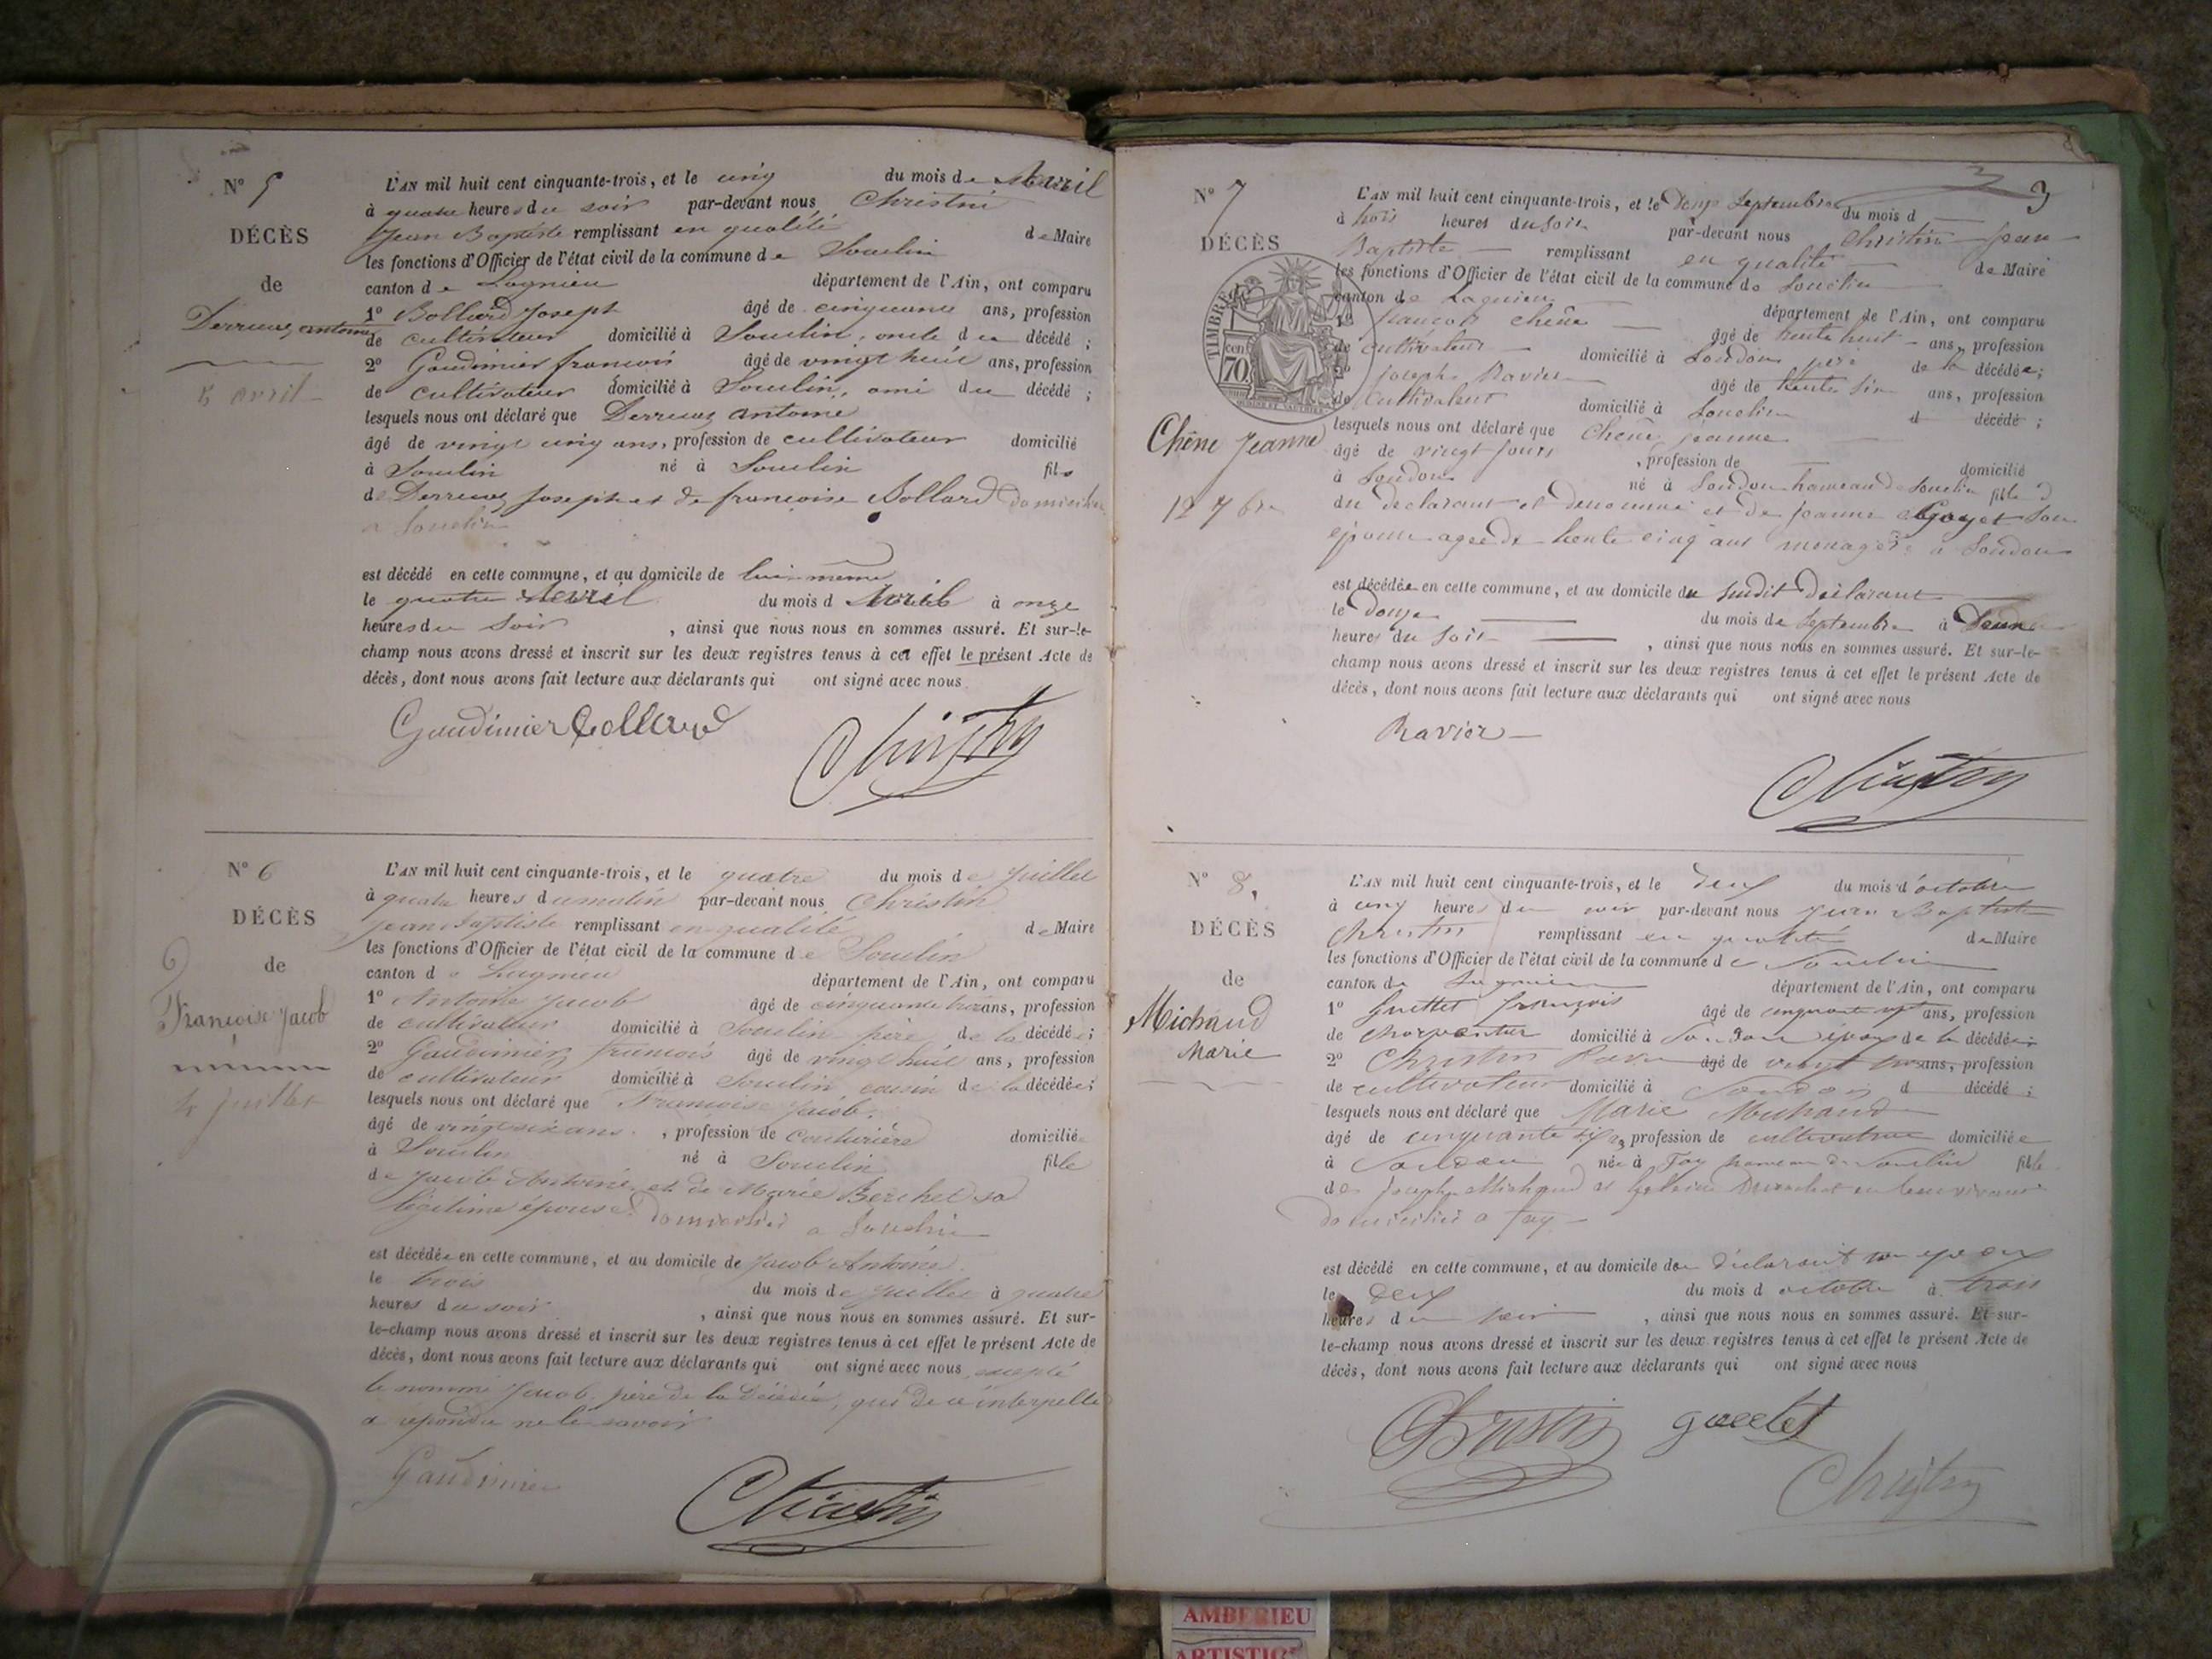 N° 5
DÉCÈS
de
Derrieuz antoine
5 avril
L'AN mil huit cent cinquante-trois, et le cinq du mois de Avril
à quatre heures du soir par-devant nous Christin
Jean Baptiste remplissant en qualité de Maire
les fonctions d'Officier de l'état civil de la commune de Souclin
canton de Lagnieu département de l'Ain, ont comparu
1° Bollard Joseph âgé de cinquante ans, profession
de cultivateur domicilié à Souclin, oncle du décédé ;
2° Gaudinier françois âgé de vingt huit ans, profession
de cultivateur domicilié à Souclin, ami du décédé ;
lesquels nous ont déclaré que antoine
âgé de vingt cinq ans, profession de cultivateur domicilié
à Souclin né à Souclin fils
de Joseph et de françoise Bollard domiciliés
a Souclin
est décédé en cette commune, et au domicile de lui même
le quatre avril du mois d Avril à onze
heures du soir , ainsi que nous nous en sommes assuré. Et sur-le-
champ nous avons dressé et inscrit sur les deux registres tenus à cet effet le présent Acte de
décès, dont nous avons fait lecture aux déclarants qui ont signé avec nous
Gaudinier Bollard
Christin
N° 6
DÉCÈS
6 de
Françoise Jacob
4 juillet
L'AN mil huit cent cinquante-trois, et le quatre du mois de Juillet
à quatre heures du matin par-devant nous Christin
Jean Baptiste remplissant en qualité de Maire
les fonctions d'Officier de l'état civil de la commune de Souclin
canton de Lagnieu département de l'Ain, ont comparu
1° Antoine Jacob âgé de cinquante trois ans, profession
de cultivateur domicilié à Souclin père de la décédée ;
2° Gaudinier françois âgé de vingt huit ans, profession
de cultivateur domicilié à Souclin cousin de la décédée ;
lesquels nous ont déclaré que Françoise Jacob
âgé de vingt six ans, profession de couturière domiciliée
à Souclin né à Souclin fille
de Jacob Antoine et de Marie Berchet sa
légitime épouse domiciliés a Souclin
est décédée en cette commune, et au domicile de Jacob Antoine
le trois du mois de juillet à quatre
heures du soir , ainsi que nous nous en sommes assuré. Et sur-
le-champ nous avons dressé et inscrit sur les deux registres tenus à cet effet le présent Acte de
décès, dont nous avons fait lecture aux déclarants qui ont signé avec nous excepté
le nommé Jacob, père de la décédée, qui de ce interpellé
a répondu ne le savoir
Gaudinier
Christin
3
N° 7
DÉCÈS
TIMBRE
cen 70
Chêne Jeanne
12 7bre
L'AN mil huit cent cinquante-trois, et le douze Septembre du mois d
à trois heures du soir par-devant nous Christin Jean
Baptiste remplissant en qualité de Maire
les fonctions d'Officier de l'état civil de la commune de Souclin
canton de Lagnieu département de l'Ain, ont comparu
1° françois Chêne âgé de trente huit ans, profession
de cultivateur domicilié à Soudon père de la décédée ;
2° joseph Ravier âgé de trente six ans, profession
de cultivateur domicilié à Souclin d décédé ;
lesquels nous ont déclaré que Chêne jeanne
âgé de vingt jours , profession de domicilié
à Soudon né à Soudon hameau de Souclin fille d
du déclarant et denommé et de jeanne Goyet son
épouse agée de trente cinq ans menagère a Soudon
est décédée en cette commune, et au domicile du susdit déclarant
le douze du mois de Septembre à d'une
heures du soir , ainsi que nous nous en sommes assuré. Et sur-le-
champ nous avons dressé et inscrit sur les deux registres tenus à cet effet le présent Acte de
décès, dont nous avons fait lecture aux déclarants qui ont signé avec nous
Ravier
Christin
N° 8,
DÉCÈS
de
Michaud
Marie
L'AN mil huit cent cinquante-trois, et le deux du mois d'octobre
à cinq heures du soir par-devant nous Jean Baptiste
Christin remplissant en qualité de Maire
les fonctions d'Officier de l'état civil de la commune de Souclin
canton de Lagnieu département de l'Ain, ont comparu
1° Guettet françois âgé de cinquante ans, profession
de charpentier domicilié à Soudon époux de la décédée ;
2° Christin âgé de vingt ans, profession
de cultivateur domicilié à Soudon d décédé ;
lesquels nous ont déclaré que Marie Michaud
âgé de cinquante six , profession de cultivatrice domiciliée
à Soudon née à Fay hameau de Souclin fille
de Joseph Michaud et en leur vivant
domiciliés a Fay
est décédé en cette commune, et au domicile du déclarant son époux
le deux du mois d octobre à trois
heures du soir , ainsi que nous nous en sommes assuré. Et sur-
le-champ nous avons dressé et inscrit sur les deux registres tenus à cet effet le présent Acte de
décès, dont nous avons fait lecture aux déclarants qui ont signé avec nous
Christin guettet
Christin
AMBERIEU
ARTISTIQUE